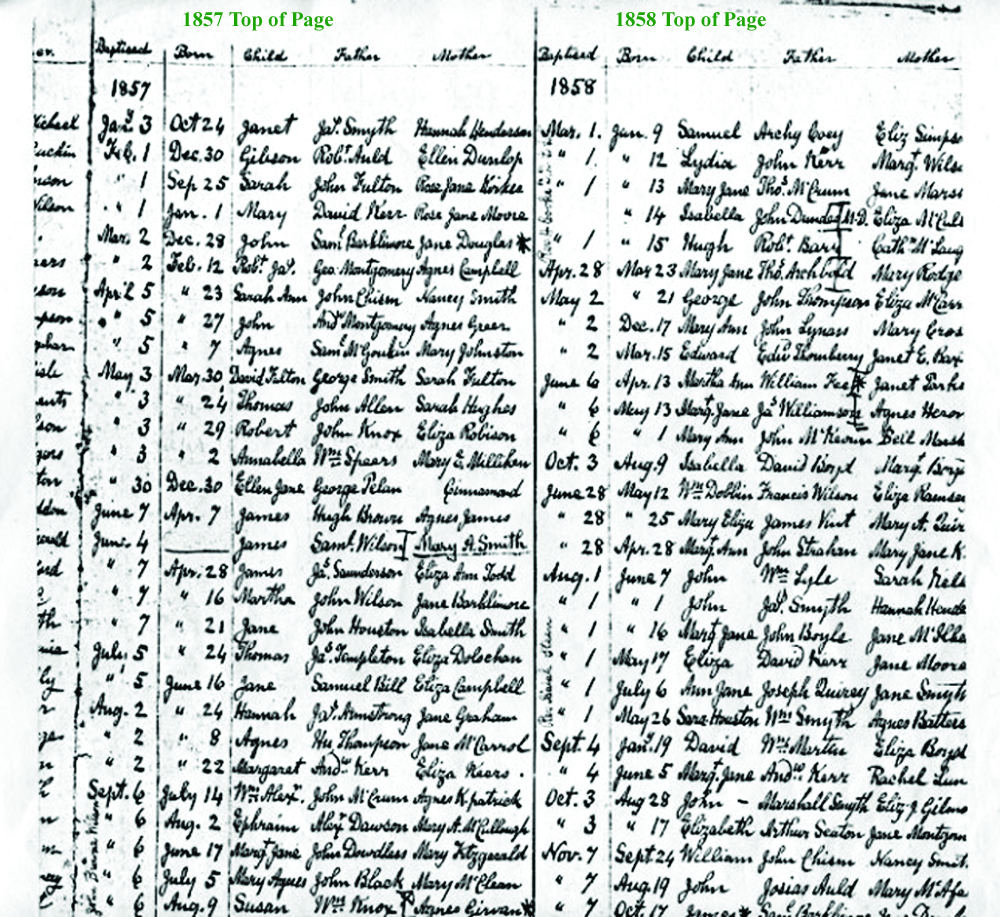 1857 Top of Page
1858 Top of Page
Baptised Born Child Father Mother Baptised Born Child Father Mother
1857 1858
Jan. 3 Oct 24 Janet Jas. Smyth Hannah Henderson Mar. 1. Jan. 9 Samuel Archy Coey Eliz Simps
Feb. 1 Dec. 30 Gibson Robt. Auld Ellen Dunlop " 1. " 12 Lydia John Kerr Margt. Wils
" 1 Sep 25 Sarah John Fulton Rose Jane " 1 " 13 Mary Jane Thos. McCrum Jane Mars
ilson " 1 Jan. 1 Mary David Kerr Rose Jane Moore " 14 Isabella John M.D. Eliza McCul
Mar. 2 Dec. 28 John Saml. Barklimore Jane Douglas * " 1 " 15 Hugh Robt. Barr Cathn.
" 2 Feb. 12 Robt. Jas. Geo. Montgomery Agnes Campbell Apr. 28 Mar 23 Mary Jane Thos. Archbold Mary Rodge
April 5 " 23 Sarah Ann John Chism Nancy Smith May 2 " 21 George John Thompson Eliza McCarr
" 5 " 27 John Andw. Montgomery Agnes Greer " 2 Dec. 17 Mary Ann John Lynass Mary Cros
" 5 " 7 Agnes Saml. Mary Johnston " 2 Mar. 15 Edward Edwd. Thornberry Janet E.
May 3 Mar. 30 David Fulton George Smith Sarah Fulton June 6 Apr. 13 Martha Ann William Fee * Janet Parke
" 3 " 24 Thomas John Allen Sarah Hughes " 6 May 13 Margt. Jane Jas. Williamson Agnes Heron
" 3 " 29 Robert John Knox Eliza Robison " 6 " 1 Mary Ann John McKeown Bell Marsh
" 3 " 2 Annabella Wm. Spears Mary E. Milliken Oct. 3 Aug. 9 Isabella David Boyd Margt.
" 30 Dec. 30 Ellen Jane George Pelan Cinnamond June 28 May 12 Wm. Dobbin Francis Wilson Eliza Ramsa
June 7 Apr. 7 James Hugh Brown Agnes James " 28 " 25 Mary Eliza James Vint Mary A.
June 4 James Saml. Wilson Mary A. Smith " 28 Apr. 28 Margt. Ann John Strahan Mary Jane K.
" 7 Apr. 28 James Jas. Saunderson Eliza Ann Todd Aug. 1 June 7 John Wm. Lyle Sarah Nels
" 7 " 16 Martha John Wilson Jane Barklimore " 1 " 1 John Jas. Smyth Hannah Hende
" 7 " 21 Jane John Houston Isabella Smith " 1 " 16 Margt. Jane John Boyle Jane
July 5 " 24 Thomas Jas. Templeton Eliza " 1 May 17 Eliza David Kerr Jane Moore
" 5 June 16 Jane Samuel Bill Eliza Campbell " 1 July 6 Ann Jane Joseph Quirey Jane Smyth
Aug. 2 " 24 Hannah Jas. Armstrong Jane Graham " 1 May 26 Sara Houston Wm. Smyth Agnes Batters
" 2 " 8 Agnes Hu. Thompson Jane McCarrol Sept. 4 Jan. 19 David Wm. Martin Eliza Boyd
" 2 " 22 Margaret Andw. Kerr Eliza Keers. " 4 June 5 Margt. Jane Andw. Kerr Rachel
Sept. 6 July 14 Wm. Alexr. John McCrum Agnes Kpatrick Oct. 3 Aug 28 John - Marshall Smyth Eliz. J Gilmo
" 6 Aug. 2 Ephraim Alexr. Dawson Mary A. McCullough " 3 " 17 Elizabeth Arthur Seaton Jane Montgom
" 6 June 17 Margt. Jane John Dowdless Mary Fitzgerald Nov. 7 Sept. 24 William John Chism Nancy Smit
" 6 July 5 Mary Agnes John Black Mary McClean " 7 Aug. 19 John Josias Auld Mary McAfe
" 6 Aug. 9 Susan Wm. Knox Agnes Girvan * " 7 Oct. 17 James *